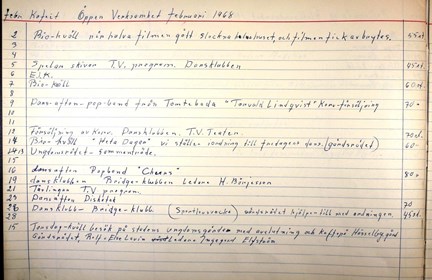 febr. Kafeit Öppen Verksamhet februari 1968
2 Bio-kväll när halva filmen gått slocknade hela huset, och filmen fick avbrytas. 55 st
3
4
5 Spelan skivor T.V. program. Dansklubben 45 st.
6 E.l.K.
7 Bio-kväll 60 st.
8
9 Dans-afton-pop-band från Tomteboda "Tanvald Lindqvist" Korv-försäljning 70 -
10
12 Försäljning av Korv. Dansklubben. T.V. Teater. 70 st.
14 Bio-kväll "Heta Dagar" vi ställer ordning till fredagens dans. (gårdsrådet) 60 -
14/3 Ungdomsrådet - sammanträde.
15
16 dansafton Popband "Cheers" 80 -
19 dansklubben Bridge-klubben Ledare H. Börjesson
21 Tävlingen T.V. program.
23 Dansafton Diskotek 70
26 Dansklubb - Bridge-klubb. gårdsrådet hjälper till med ordningen. 45 st.
28
15 Torsdag-kväll besök på stadens ungdomsgårdar med avslutning och kaffe på Hässelby gård
Gårdsrådet, Rolf-Eke Levin Ledare Ingegerd Elfström